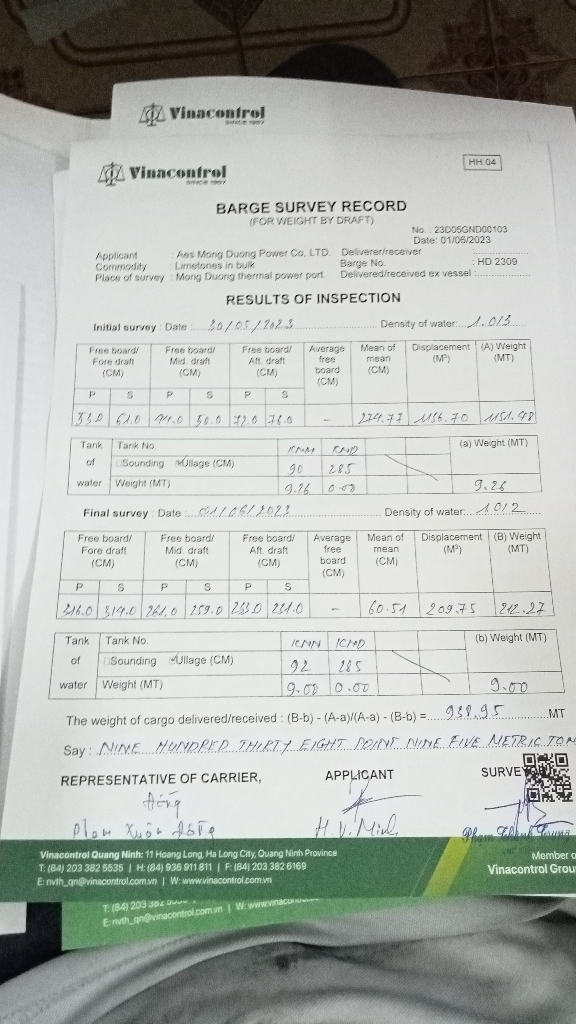 Vinacontrol
SINCE 1957
Vinacontrol
SINCE 1957
HH.04
BARGE SURVEY RECORD
(FOR WEIGHT BY DRAFT)
No. : 23D05GND00103
Date: 01/06/2023
Applicant : Aes Mong Duong Power Co, LTD. Deliverer/receiver
Commodity : Limetones in bulk Barge No. : HD 2309
Place of survey : Mong Duong thermal power port. Delivered/received ex vessel :
RESULTS OF INSPECTION
Initial survey : Date : 30/05/2023 Density of water: 1.013
Free board/ Fore draft (CM) Free board/ Mid. draft (CM) Free board/ Aft. draft (CM) Average free board (CM) Mean of mean (CM) Displacement (M³) (A) Weight (MT)
P S P S P S
61.0 50.0 72.0 76.0 - 274.77 1156.70 1151.98
Tank of water Tank No. (a) Weight (MT)
Sounding Ullage (CM) 90 285
Weight (MT) 9.26 0.00 9.26
Final survey : Date : 01/06/2023 Density of water: 1.012
Free board/ Fore draft (CM) Free board/ Mid. draft (CM) Free board/ Aft. draft (CM) Average free board (CM) Mean of mean (CM) Displacement (M³) (B) Weight (MT)
P S P S P S
316.0 319.0 261.0 259.0 233.0 231.0 - 60.51 209.75 212.27
Tank of water Tank No. (b) Weight (MT)
Sounding Ullage (CM) 92 285
Weight (MT) 9.00 0.00 9.00
The weight of cargo delivered/received : (B-b) - (A-a)/(A-a) - (B-b) = 938.95 MT
Say : NINE HUNDRED THIRTY EIGHT POINT NINE FIVE METRIC TON
REPRESENTATIVE OF CARRIER, APPLICANT SURVE
Phạm Xuân Đông H.V. Minh
Vinacontrol Quang Ninh: 11 Hoang Long, Ha Long City, Quang Ninh Province
T: (84) 203 382 5535 | H: (84) 936 911 811 | F: (84) 203 382 6169
E: nvth_qn@vinacontrol.com.vn | W: www.vinacontrol.com.vn
Member o
Vinacontrol Grou
T: (84) 203 382
E: nvth_qn@vinacontrol.com.vn | W: www.vinacon